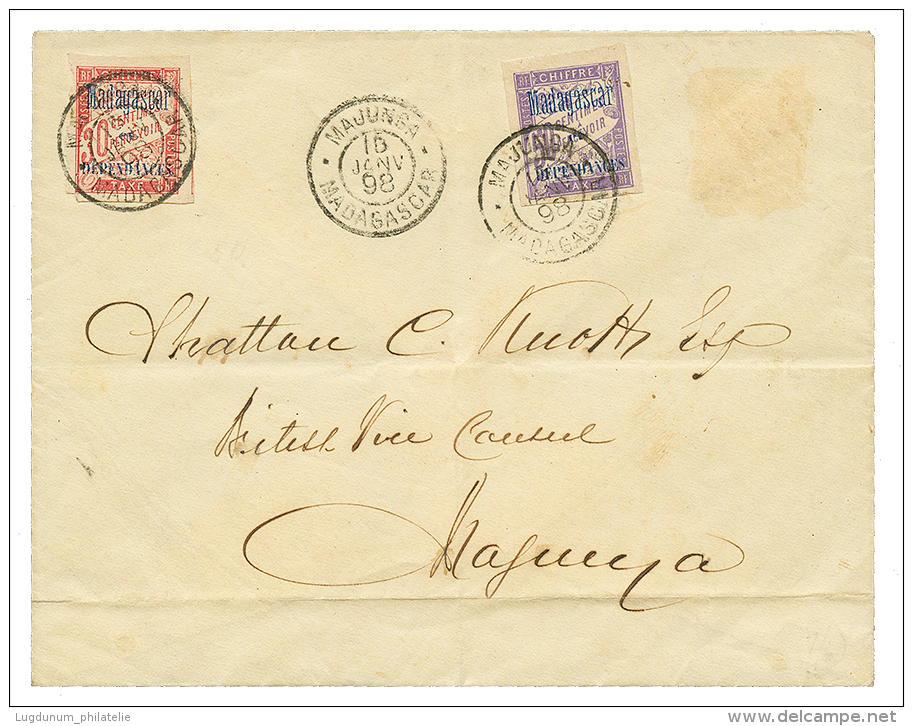 RF CHIFFRE
Madagascar
30 CENTIMES
PERCEVOIR
et
DÉPENDANCES
TAXE
MAJUNGA
MADAGASCAR
MAJUNGA
16
JANV
98
MADAGASCAR
CHIFFRE
Madagascar
50 CENTIMES
PERCEVOIR
et
DÉPENDANCES
TAXE RF
POSTES
MAJUNGA
98
MADAGASCAR
Stratton C. Knott Esq
British Vice Consul
Magunga
Lugdunum_philatelie
www.delcampe.net